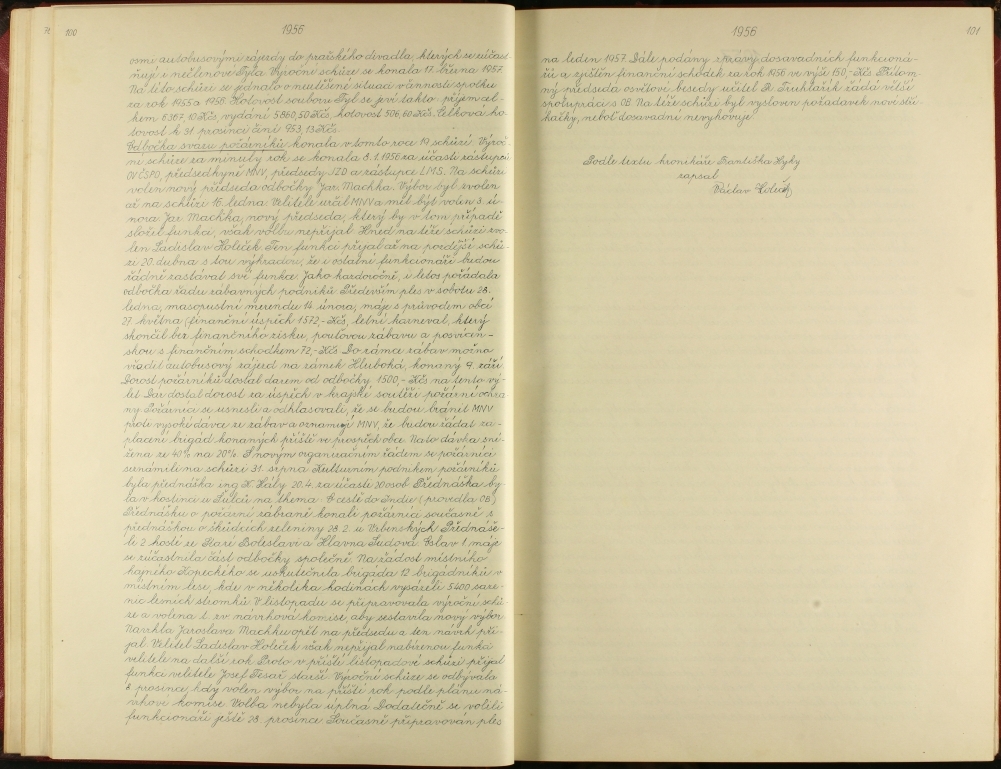 100
1956
osmi autobusovými zájezdy do pražského divadla, kterých se zúčast-
ňují i nečlenové Tyla. Výroční schůze se konala 17. března 1957.
Na této schůzi se jednalo o neutěšené situaci v činnosti spolku
za rok 1955 a 1956. Hotovost souboru Tyl se jeví takto: příjem cel-
kem 6367,10 Kčs, vydání 5860,50 Kčs, hotovost 506,60 Kčs. Celková ho-
tovost k 31. prosinci činí 953,13 Kčs.
Odbočka svazu požárníků konala v tomto roce 19 schůzí. Výroč-
ní schůze za minulý rok se konala 8.1.1956 za účasti zástupců
OVČSPO, předsedkyně MNV, předsedy JZD a zástupce LMS. Na schůzi
volen nový předseda odbočky Jar. Machka. Výbor byl zvolen
až na schůzi 16. ledna. Velitele určil MNV a měl být volen 3. ú-
nora Jar. Machka, nový předseda, který by v tom případě
složil funkci, však volbu nepřijal. Hned na téže schůzi zvo-
len Ladislav Holeček. Ten funkci přijal až na pozdější schů-
zi 20. dubna s tou výhradou, že i ostatní funkcionáři budou
řádně zastávat své funkce. Jako každoročně, i letos pořádala
odbočka řadu zábavných podniků. Především ples v sobotu 28.
ledna, masopustní merendu 14. února, máje s průvodem obcí
27. května (finanční úspěch 1572,- Kčs, letní karneval, který
skončil bez finančního zisku, pouťovou zábavu a posvícen-
skou s finančním schodkem 72,- Kčs. Do rámce zábav možno
vřadit autobusový zájezd na zámek Hluboká, konaný 9. září.
Dorost požárníků dostal darem od odbočky 1500,- Kčs na tento vý-
let. Dar dostal dorost za úspěch v krajské soutěži požární ochra-
ny. Požárníci se usnesli a odhlasovali, že se budou bránit MNV
proti vysoké dávce ze zábav a oznamují MNV, že budou žádat za-
placení brigád konaných příště ve prospěch obce. Nato dávka sní-
žena ze 40% na 20%. S novým organizačním řádem se požárníci
seznámili na schůzi 31. srpna. Kulturním podnikem požárníků
byla přednáška ing. K. Hály 20.4. za účasti 20 osob. Přednáška by-
la v hostinci u Šulců na thema: O cestě do Indie (provedla CB)
Přednášku o požární zábraně konali požárníci současně s
přednáškou o škůdcích zeleniny 28.2. u Vrbenských. Přednáše-
li 2 hosté ze Staré Boleslavi a Hlavna Sudova. Oslav 1. máje
se zúčastnila část odbočky společně. Na žádost místního
hajného Kopeckého se uskutečnila brigáda 12 brigádníků v
místním lese, kde v několika hodinách vysázeli 5400 saze-
nic lesních stromků. V listopadu se připravovala výroční schů-
ze a volena t. zv. návrhová komise, aby sestavila nový výbor.
Navrhla Jaroslava Machku opět na předsedu a ten návrh při-
jal. Velitel Ladislav Holeček však nepřijal nabízenou funkci
velitele na další rok. Proto v příští listopadové schůzi přijal
funkci velitele Josef Tesař starší. Výroční schůze se odbývala
8. prosince, kdy volen výbor na příští rok podle plánu ná-
vrhové komise. Volba nebyla úplná. Dodatečně se volili
funkcionáři ještě 28. prosince. Současně připravován ples
1956
101
na leden 1957. Dále podány zprávy dosavadních funkcioná-
řů a zjištěn finanční schodek za rok 1956 ve výši 150,- Kčs. Přítom-
ný předseda osvětové besedy učitel K. Truhlařík žádá větší
spolupráci s OB. Na téže schůzi byl vysloven požadavek nové stří-
kačky, neboť dosavadní nevyhovuje.
Podle textu kronikáře Františka Hyky
zapsal
Václav Holeček